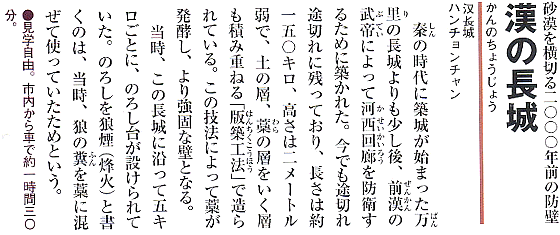 砂漠を横切る二〇〇〇年前の防壁
漢の長城
かんのちょうじょう
汉长城
ハンチョンチャン
秦の時代に築城が始まった万
里の長城よりも少し後、前漢の
武帝によって河西回廊を防衛す
るために築かれた。今でも途切れ
途切れに残っており、長さは約
一五〇キロ、高さは二メートル
弱で、土の層、藁の層をいく層
も積み重ねる「版築工法」で造ら
れている。この技法によって藁が
発酵し、より強固な壁となる。
当時、この長城に沿って五キ
ロごとに、のろし台が設けられて
いた。のろしを狼煙（烽火）と書
くのは、当時、狼の糞を藁に混
ぜて使っていたためという。
●見学自由。市内から車で約一時間三〇
分。